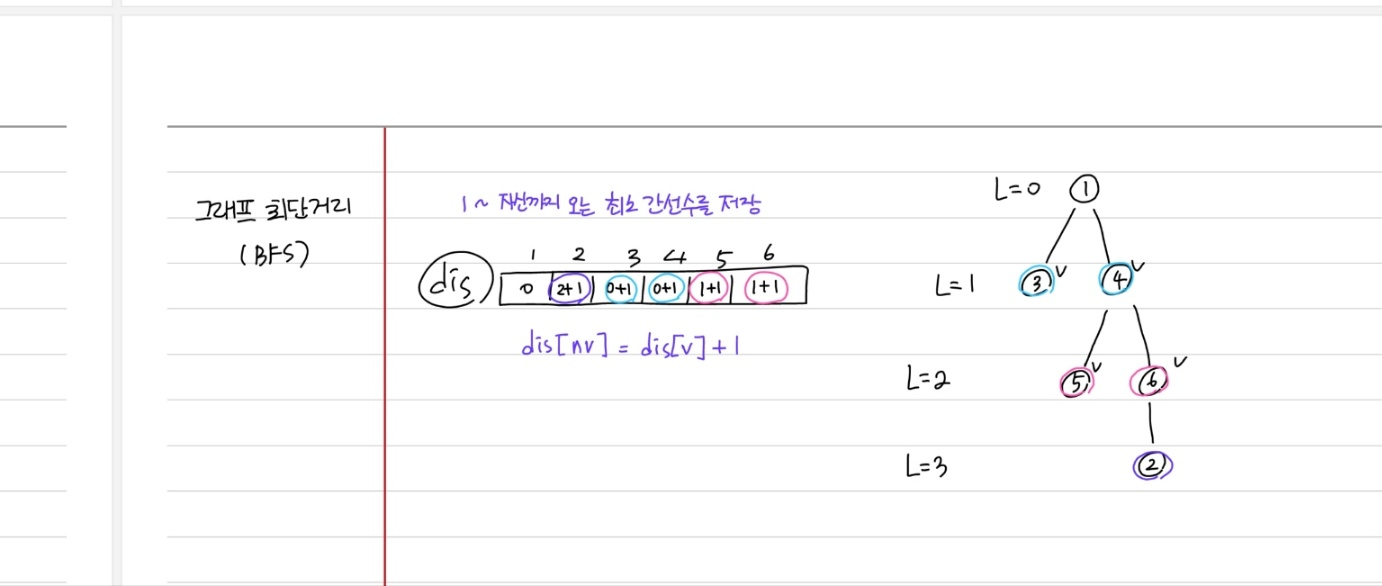 그래프 최단거리
(BFS)
1~ 자신까지 오는 최소 간선수를 저장
1 2 3 4 5 6
dis 0 2+1 0+1 0+1 1+1 1+1
dis[nv] = dis[v]+1
L=0 1
L=1 3 v 4 v
L=2 5 v 6 v
L=3 2